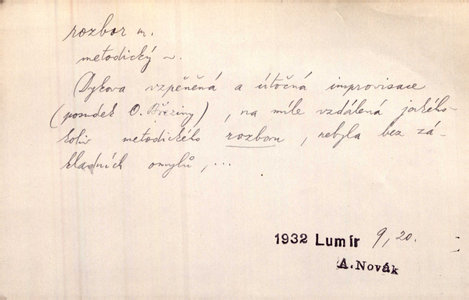 rozbor m.
metodický ~.
Dykova vzpěněná a útočná improvisace
(posudek O. Březiny), na míle vzdálená jakého-
koliv metodického rozboru, nebyla bez zá-
kladních omylů, ...
1932 Lumír 9, 20.
A. Novák